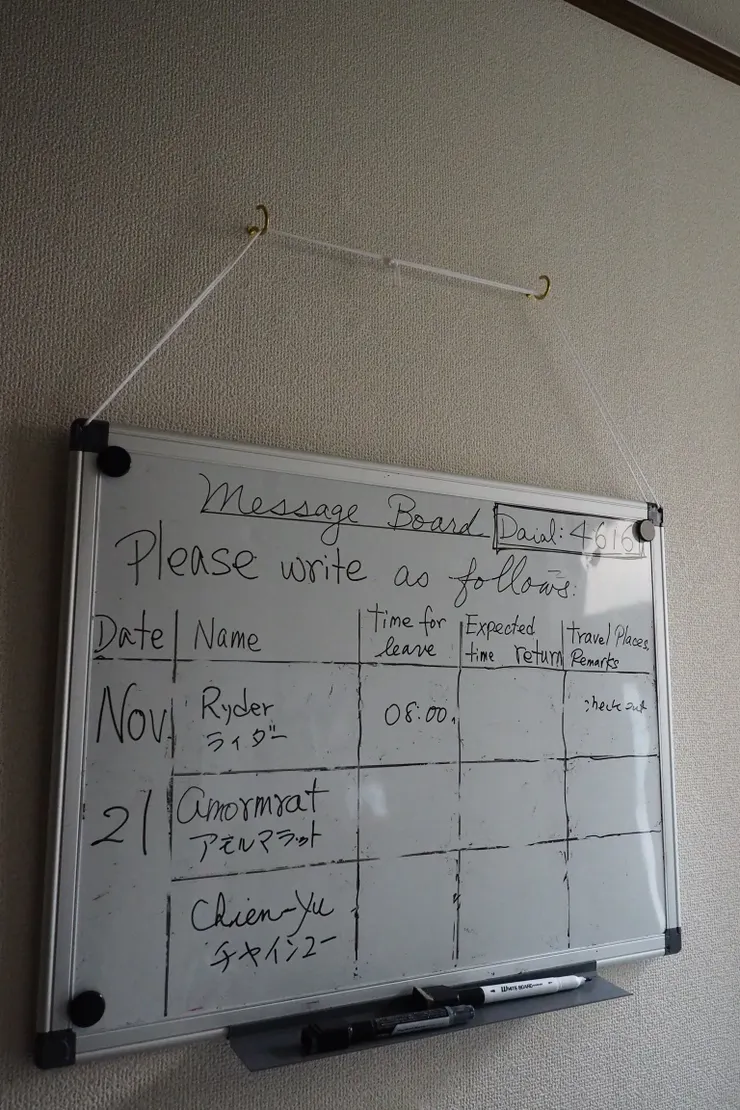 Message Board
Daial: 4616
Please write as follows:
Date
Name
time for leave
Expected time return
travel Places, Remarks
Nov
Ryder
ライダー
08:00.
check out
21
amormrat
アモルマラット
Chien-Yu
チャインユー
WHITE BOARD